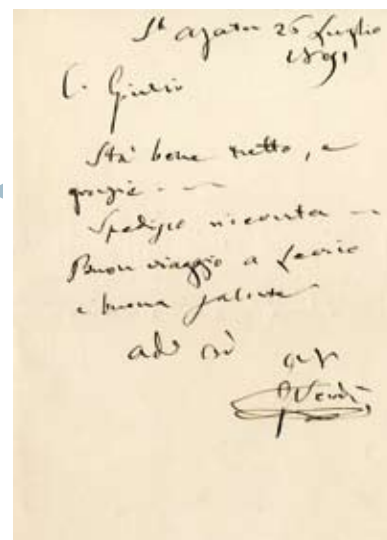 St Agata 26 Luglio
1891
C. Giulio
Sta bene tutto, e
grazie. —
Spedisco ricevuta —
Buon viaggio a Levico
e buona salute
G Verdi